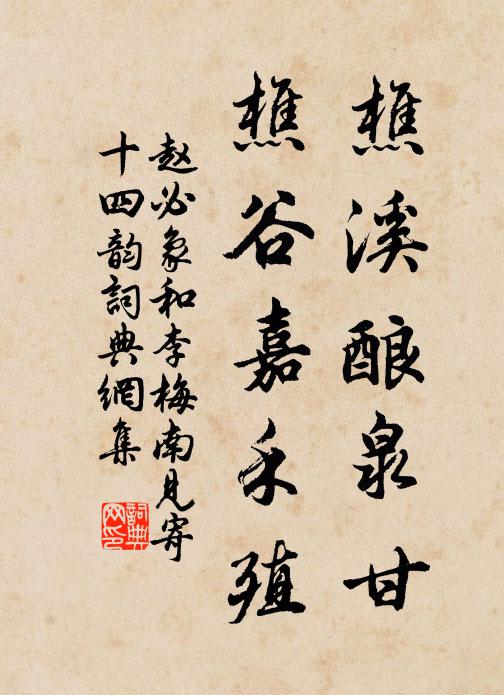 樵溪酿泉甘
樵谷嘉禾殖
赵必象和李梅南见寄
十四韵詞典網集
詞典网印